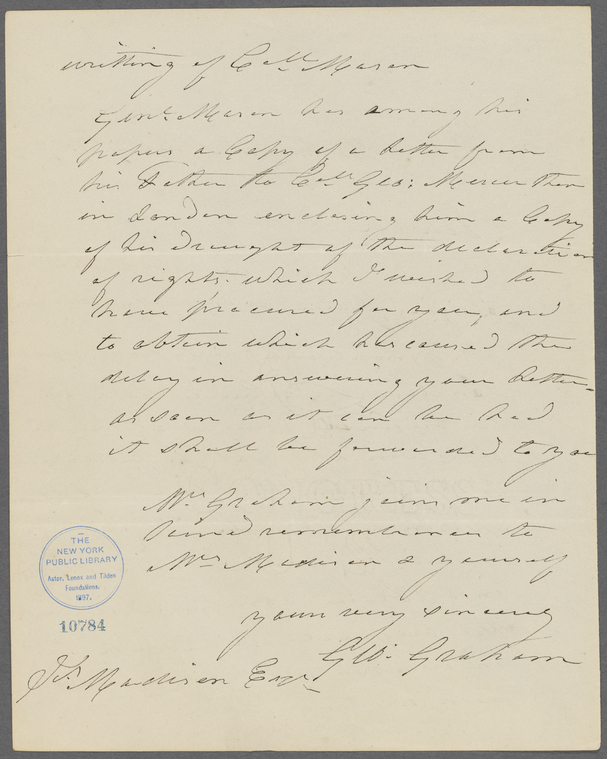 writting of Coll. Mason
Genl. Mason has among his
papers a Copy of a letter from
his Father to Coll. Geo: Mercer then
in London enclosing him a Copy
of his draught of the declaration
of rights. which I wished to
have procured for you, and
to obtain which has caused the
delay in answering your letter.
as soon as it can be had
it shall be forwarded to you
Mrs. Graham joins me in
kind remembrances to
Mrs. Madison & yourself
yours very sincerely
Geo. Graham
Js. Madison Esqr
THE
NEW YORK
PUBLIC LIBRARY
Astor, Lenox and Tilden
Foundations.
1897.
10784